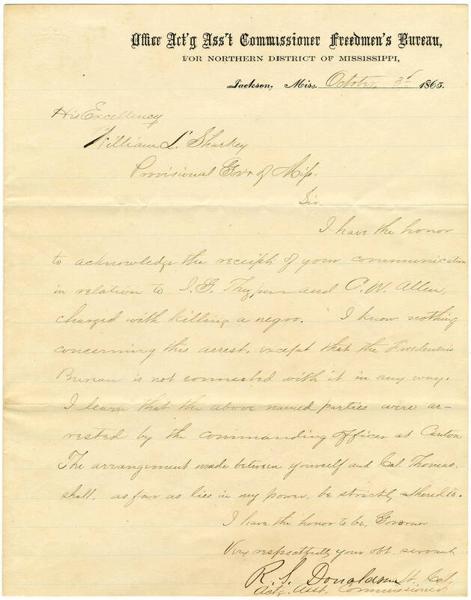 Office Act'g Ass't Commissioner Freedmen's Bureau,
FOR NORTHERN DISTRICT OF MISSISSIPPI,
Jackson, Miss. October 3d 1865.
His Excellency
William L Sharkey
Provisional Gov. of Miss.
Sir
I have the honor
to acknowledge the receipt of your communication
in relation to J. F. and C. W. Allen,
charged with killing a negro. I know nothing
concerning this arrest, except that the Freedmens
Bureau is not connected with it in any way.
I learn that the above named parties were ar-
rested by the commanding officer at Canton.
The arrangement made between yourself and Col Thomas,
shall, as far as lies in my power, be strictly adhered to.
I have the honor to be, Governor
Very respectfully your obt. servant
R. S. Donaldson Lt. Col.
Actg. Asst. Commissioner